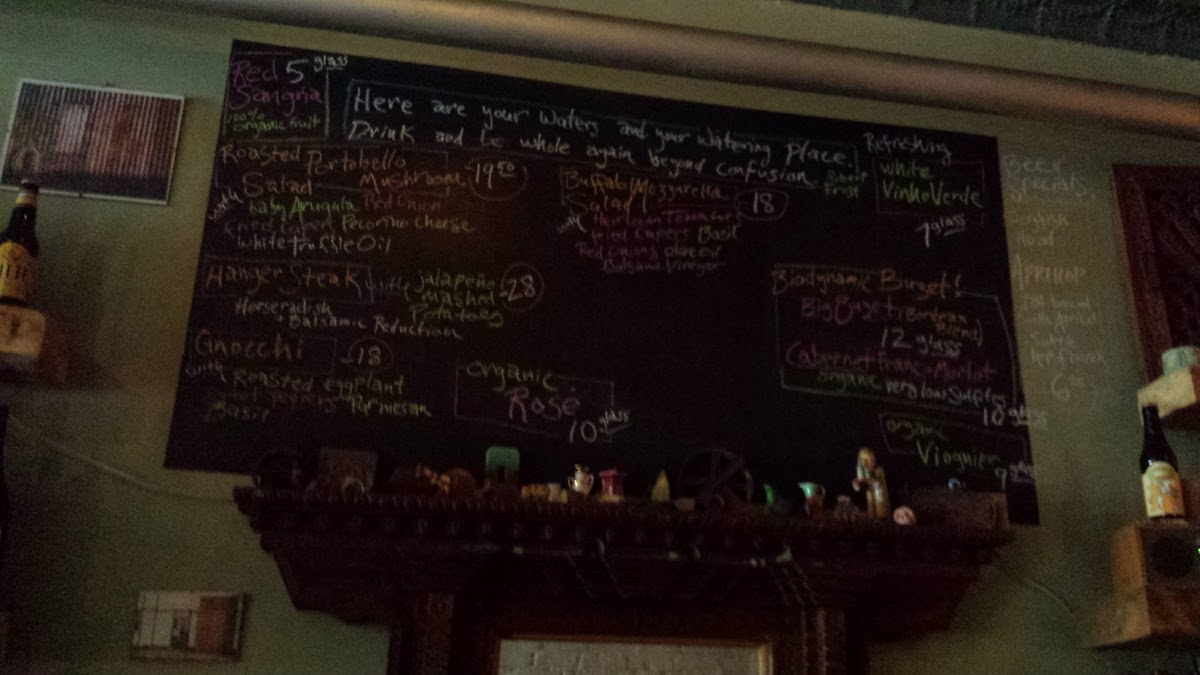 Red 5 glass
Sangria
100%
organic fruit
Here are your waters and your watering place.
Drink and be whole again beyond confusion.
Robert
Frost
Refreshing
white
Vinho Verde
7 glass
Roasted Portabello
Mushroom - 19.50
Salad
with baby Arugula Red Onion
Fried Capers Pecorino Cheese
White truffle Oil
Buffalo Mozzarella
Salad 18
with Heirloom Tomatoes
fried Capers Basil
Red Onions olive oil
Balsamic Vinegar
Hanger Steak with jalapeño
mashed - 28
Potatoes
Horseradish
+ Balsamic Reduction
Gnocchi - 18
with Roasted eggplant
Parmesan
Basil
organic
Rosé
10 glass
Biodynamic Buzet!
Big Buzet (Bordeaux
Blend)
12 glass
Cabernet Franc - Merlot
organic very low Sulfites
10 glass
organic
Viognier
9 glass
Beer
Specials